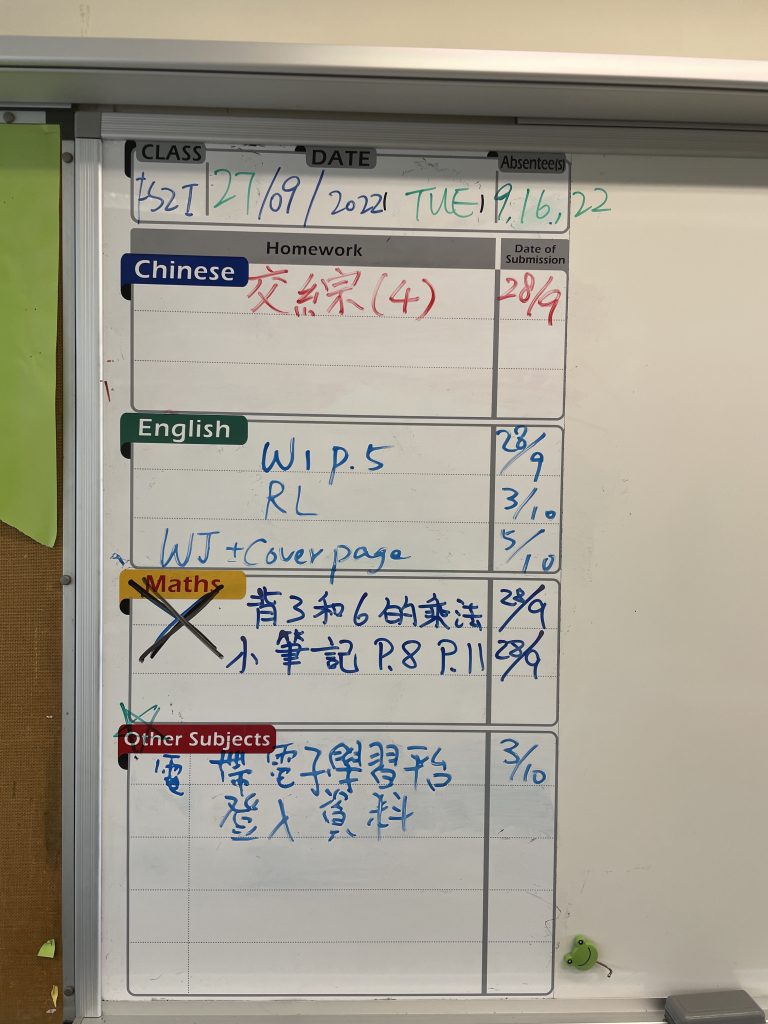 CLASS DATE Absentee(s)
S2I 27/09/2022 TUE 9, 16, 22
Homework Date of Submission
Chinese
交綜(4) 28/9
English
W1 P.5 28/9
RL 3/10
WJ ±Cover page 5/10
Maths
背3和6的乘法 28/9
小筆記 P.8 P.11 28/9
Other Subjects
電 帶電子學習平台 3/10
登入資料